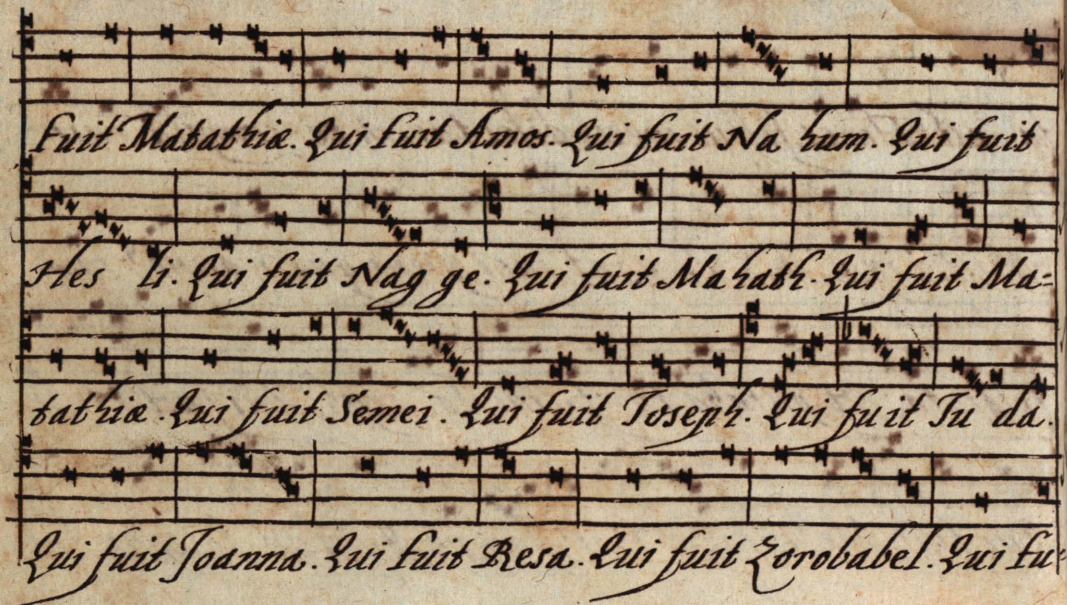 fuit Matathiæ. Qui fuit Amos. Qui fuit Na hum. Qui fuit
Hes li. Qui fuit Nag ge. Qui fuit Mahath. Qui fuit Ma=
tathiæ. Qui fuit Semei. Qui fuit Joseph. Qui fuit Ju da.
Qui fuit Joanna. Qui fuit Resa. Qui fuit Zorobabel. Qui fu=